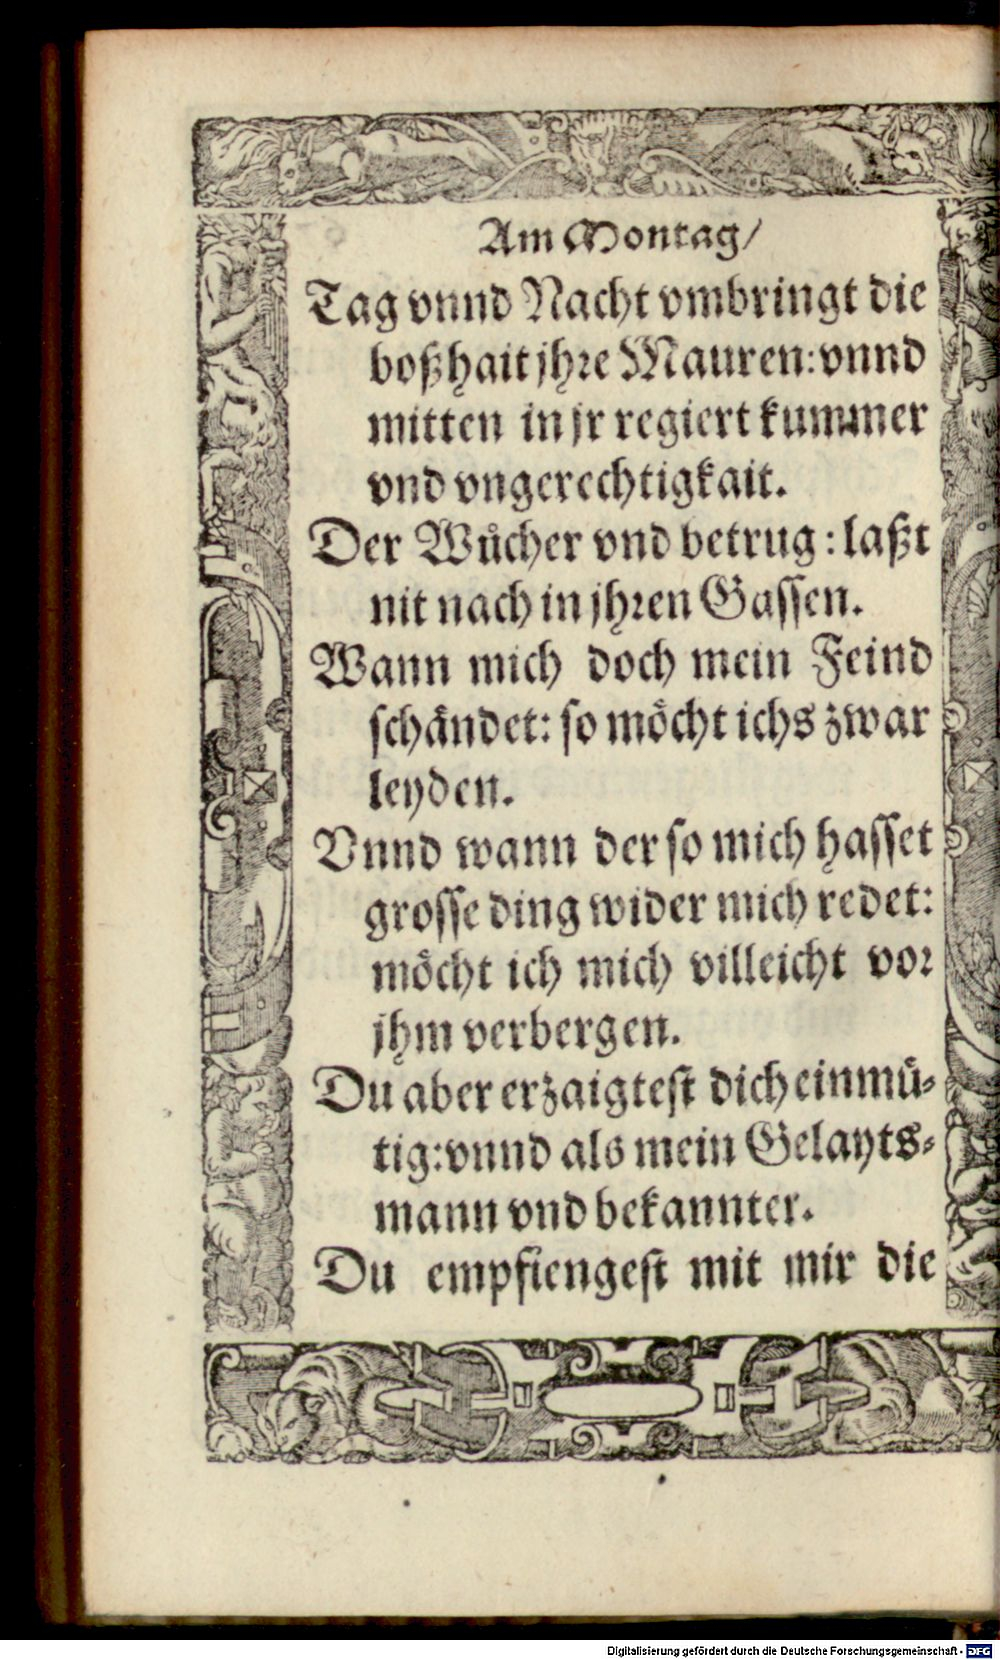 Am Montag/
Tag vnnd Nacht vmbringt die
boßhait jhre Mauren: vnnd
mitten in jr regiert kummer
vnd vngerechtigkait.
Der Wůcher vnd betrug: laßt
nit nach in jhren Gassen.
Wann mich doch mein Feind
schändet: so möcht ichs zwar
leyden.
Vnnd wann der so mich hasset
grosse ding wider mich redet:
möcht ich mich villeicht vor
jhm verbergen.
Du aber erzaigtest dich einmü-
tig: vnnd als mein Gelayts-
mann vnd bekannter.
Du empfiengest mit mir die
Digitalisierung gefördert durch die Deutsche Forschungsgemeinschaft - DFG